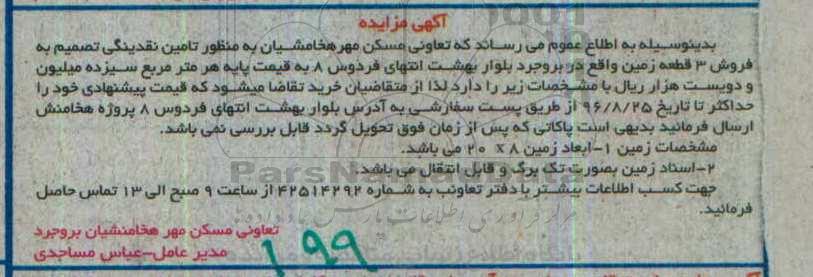 آگهی مزایده
بدینوسیله به اطلاع عموم می رساند که تعاونی مسکن مهر هخامنشیان به منظور تامین نقدینگی تصمیم به
فروش ۳ قطعه زمین واقع در بروجرد بلوار بهشت انتهای فردوس ۸ به قیمت پایه هر متر مربع سیزده میلیون
و دویست هزار ریال با مشخصات زیر را دارد لذا از متقاضیان خرید تقاضا میشود که قیمت پیشنهادی خود را
حداکثر تا تاریخ ۹۶/۸/۲۵ از طریق پست سفارشی به آدرس بلوار بهشت انتهای فردوس ۸ پروژه هخامنش
ارسال فرمائید بدیهی است پاکاتی که پس از زمان فوق تحویل گردد قابل بررسی نمی باشد.
مشخصات زمین ۱-ابعاد زمین ۸ x ۲۰ می باشد.
۲-اسناد زمین بصورت تک برگ و قابل انتقال می باشد.
جهت کسب اطلاعات بیشتر با دفتر تعاونی به شماره ۴۲۵۱۴۲۹۲ از ساعت ۹ صبح الی ۱۳ تماس حاصل
فرمائید.
تعاونی مسکن مهر هخامنشیان بروجرد
مدیر عامل-عباس مساجدی
۱۹۹